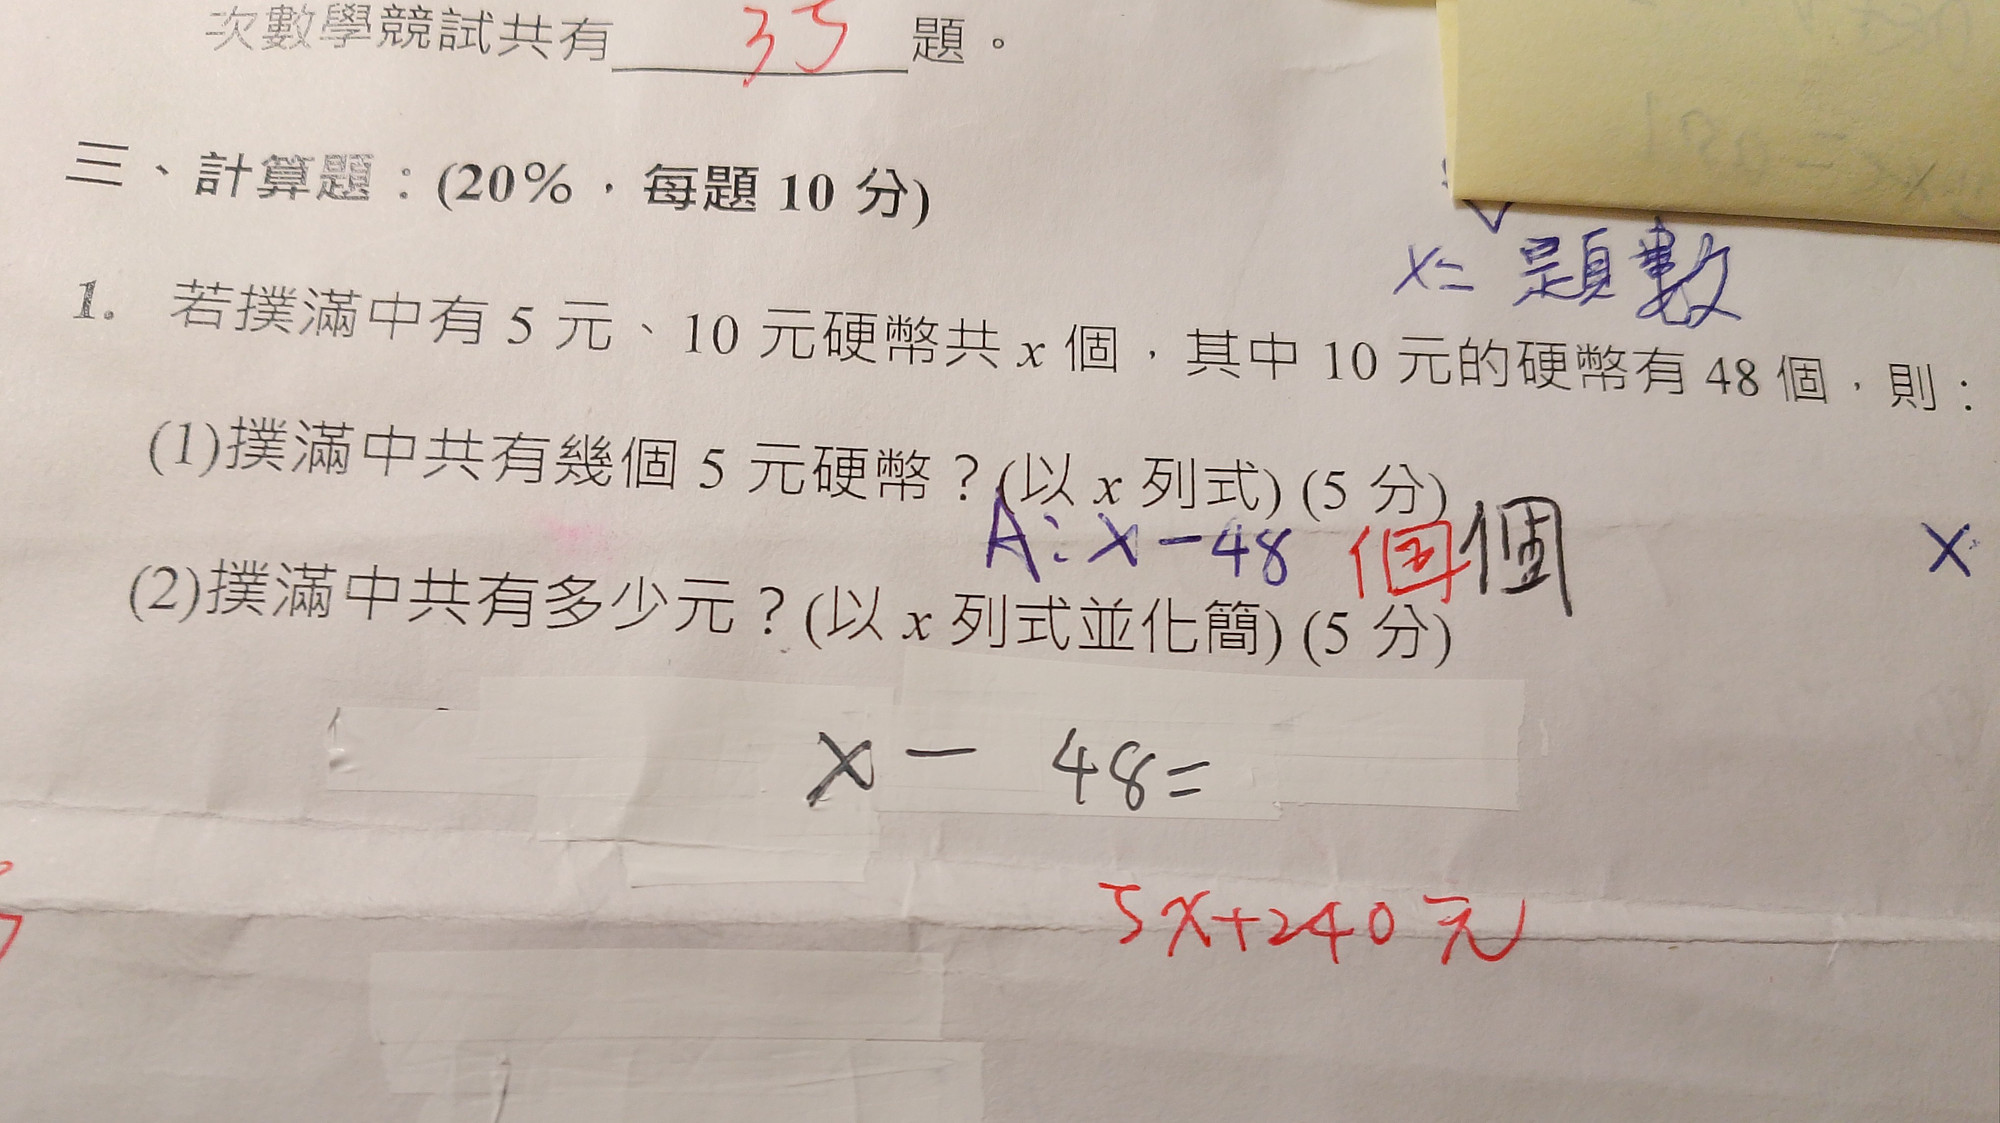 次數學競試共有 35 題。
三、計算題：(20%，每題 10 分)
x= 題數
1. 若撲滿中有 5 元、10 元硬幣共 x 個，其中 10 元的硬幣有 48 個，則：
(1)撲滿中共有幾個 5 元硬幣？(以 x 列式) (5 分)
A: x-48 個 個
x
(2)撲滿中共有多少元？(以 x 列式並化簡) (5 分)
x - 48=
5x+240 元